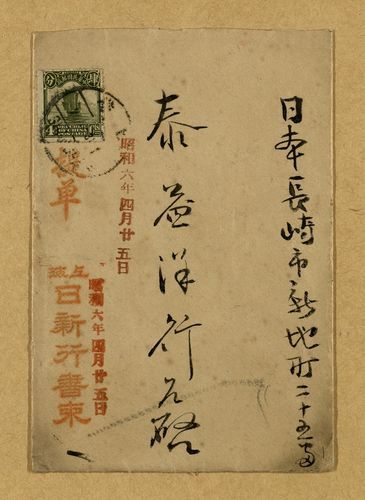 日本長崎市新地町二十五番
泰益洋行台啓
昭和六年四月廿五日
昭和六年四月廿五日
单
日新行書柬
分 4